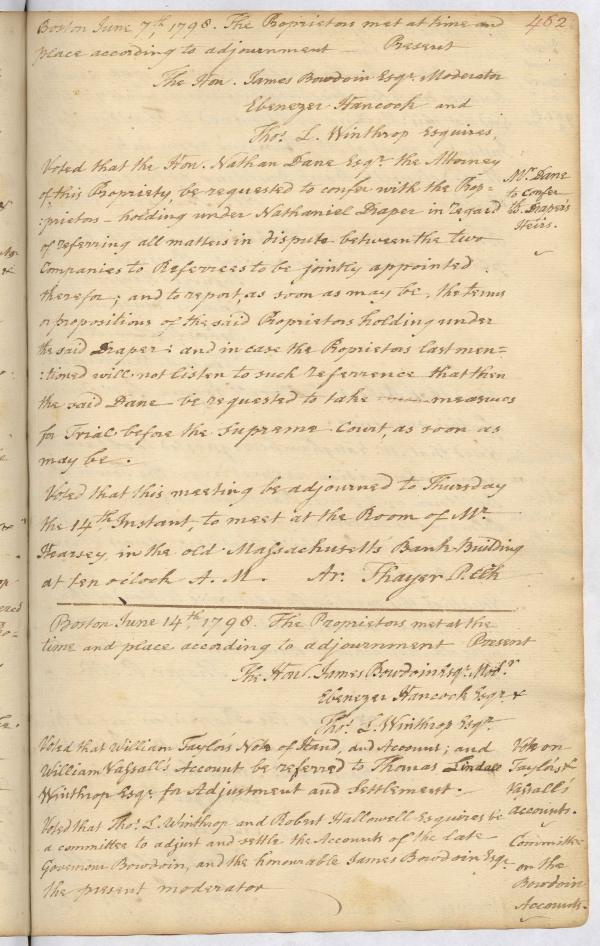 462
Boston June 7th. 1798. The Proprietors met at time and
place according to adjournment — Present
The Hon. James Bowdoin Esqr. Moderator
Ebenezer Hancock and
Thos. L. Winthrop Esquires,
Voted that the Hon. Nathan Dane Esqr. the Attorney
of this Propriety, be requested to confer with the Prop=
:prietors — holding under Nathaniel Draper in regard
of referring all matters in dispute between the two
Companies to Referrees to be jointly appointed
therefor; and to report, as soon as may be, the terms
or propositions of the said Proprietors holding under
the said Draper: and in case the Proprietors last men=
:tioned will not listen to such referrence that then
the said Dane be requested to take measures
for Trial before the Supreme Court, as soon as
may be.
Mr. Dane
to confer
Draper's
Heirs.
Voted that this meeting be adjourned to Thursday
the 14th. Instant, to meet at the Room of Mr.
Hearsey, in the old Massachusetts Bank Building
at ten o'clock A. M. Ar. Thayer P. Clk
Boston June 14th. 1798. The Proprietors met at the
time and place according to adjournment Present
The Hon. James Bowdoin Esqr. Modr.
Ebenezer Hancock Esqr. &
Thos. L. Winthrop Esqr.
Voted that William Taylor's Note of Hand, and Account; and
William Vassall's Account be referred to Thomas Lindall
Winthrop Esqr. for Adjustment and Settlement.
Vote on
Taylor's &
Vassall's
accounts.
Voted that Thos. L. Winthrop and Robert Hallowell Esquires be
a committee to adjust and settle the Accounts of the late
Governour Bowdoin, and the honourable James Bowdoin Esqr.
the present moderator
Committee
on the
Bowdoin
Accounts.